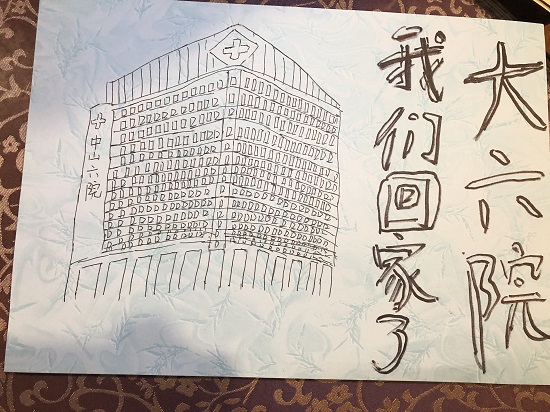 大六院
我们回家了
中山六院